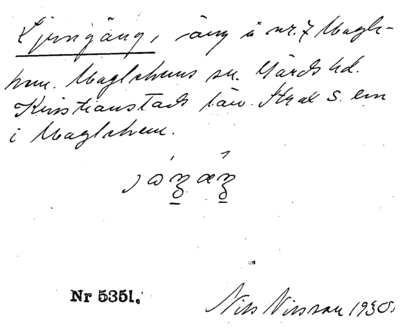 Ljungäng, äng å nr. 7 Magle-
hem. Maglehems sn. Gärds hd.
Kristianstads län. Strax S. om
i Maglehem.
Nr 5351.
Nils Nilsson 1930.